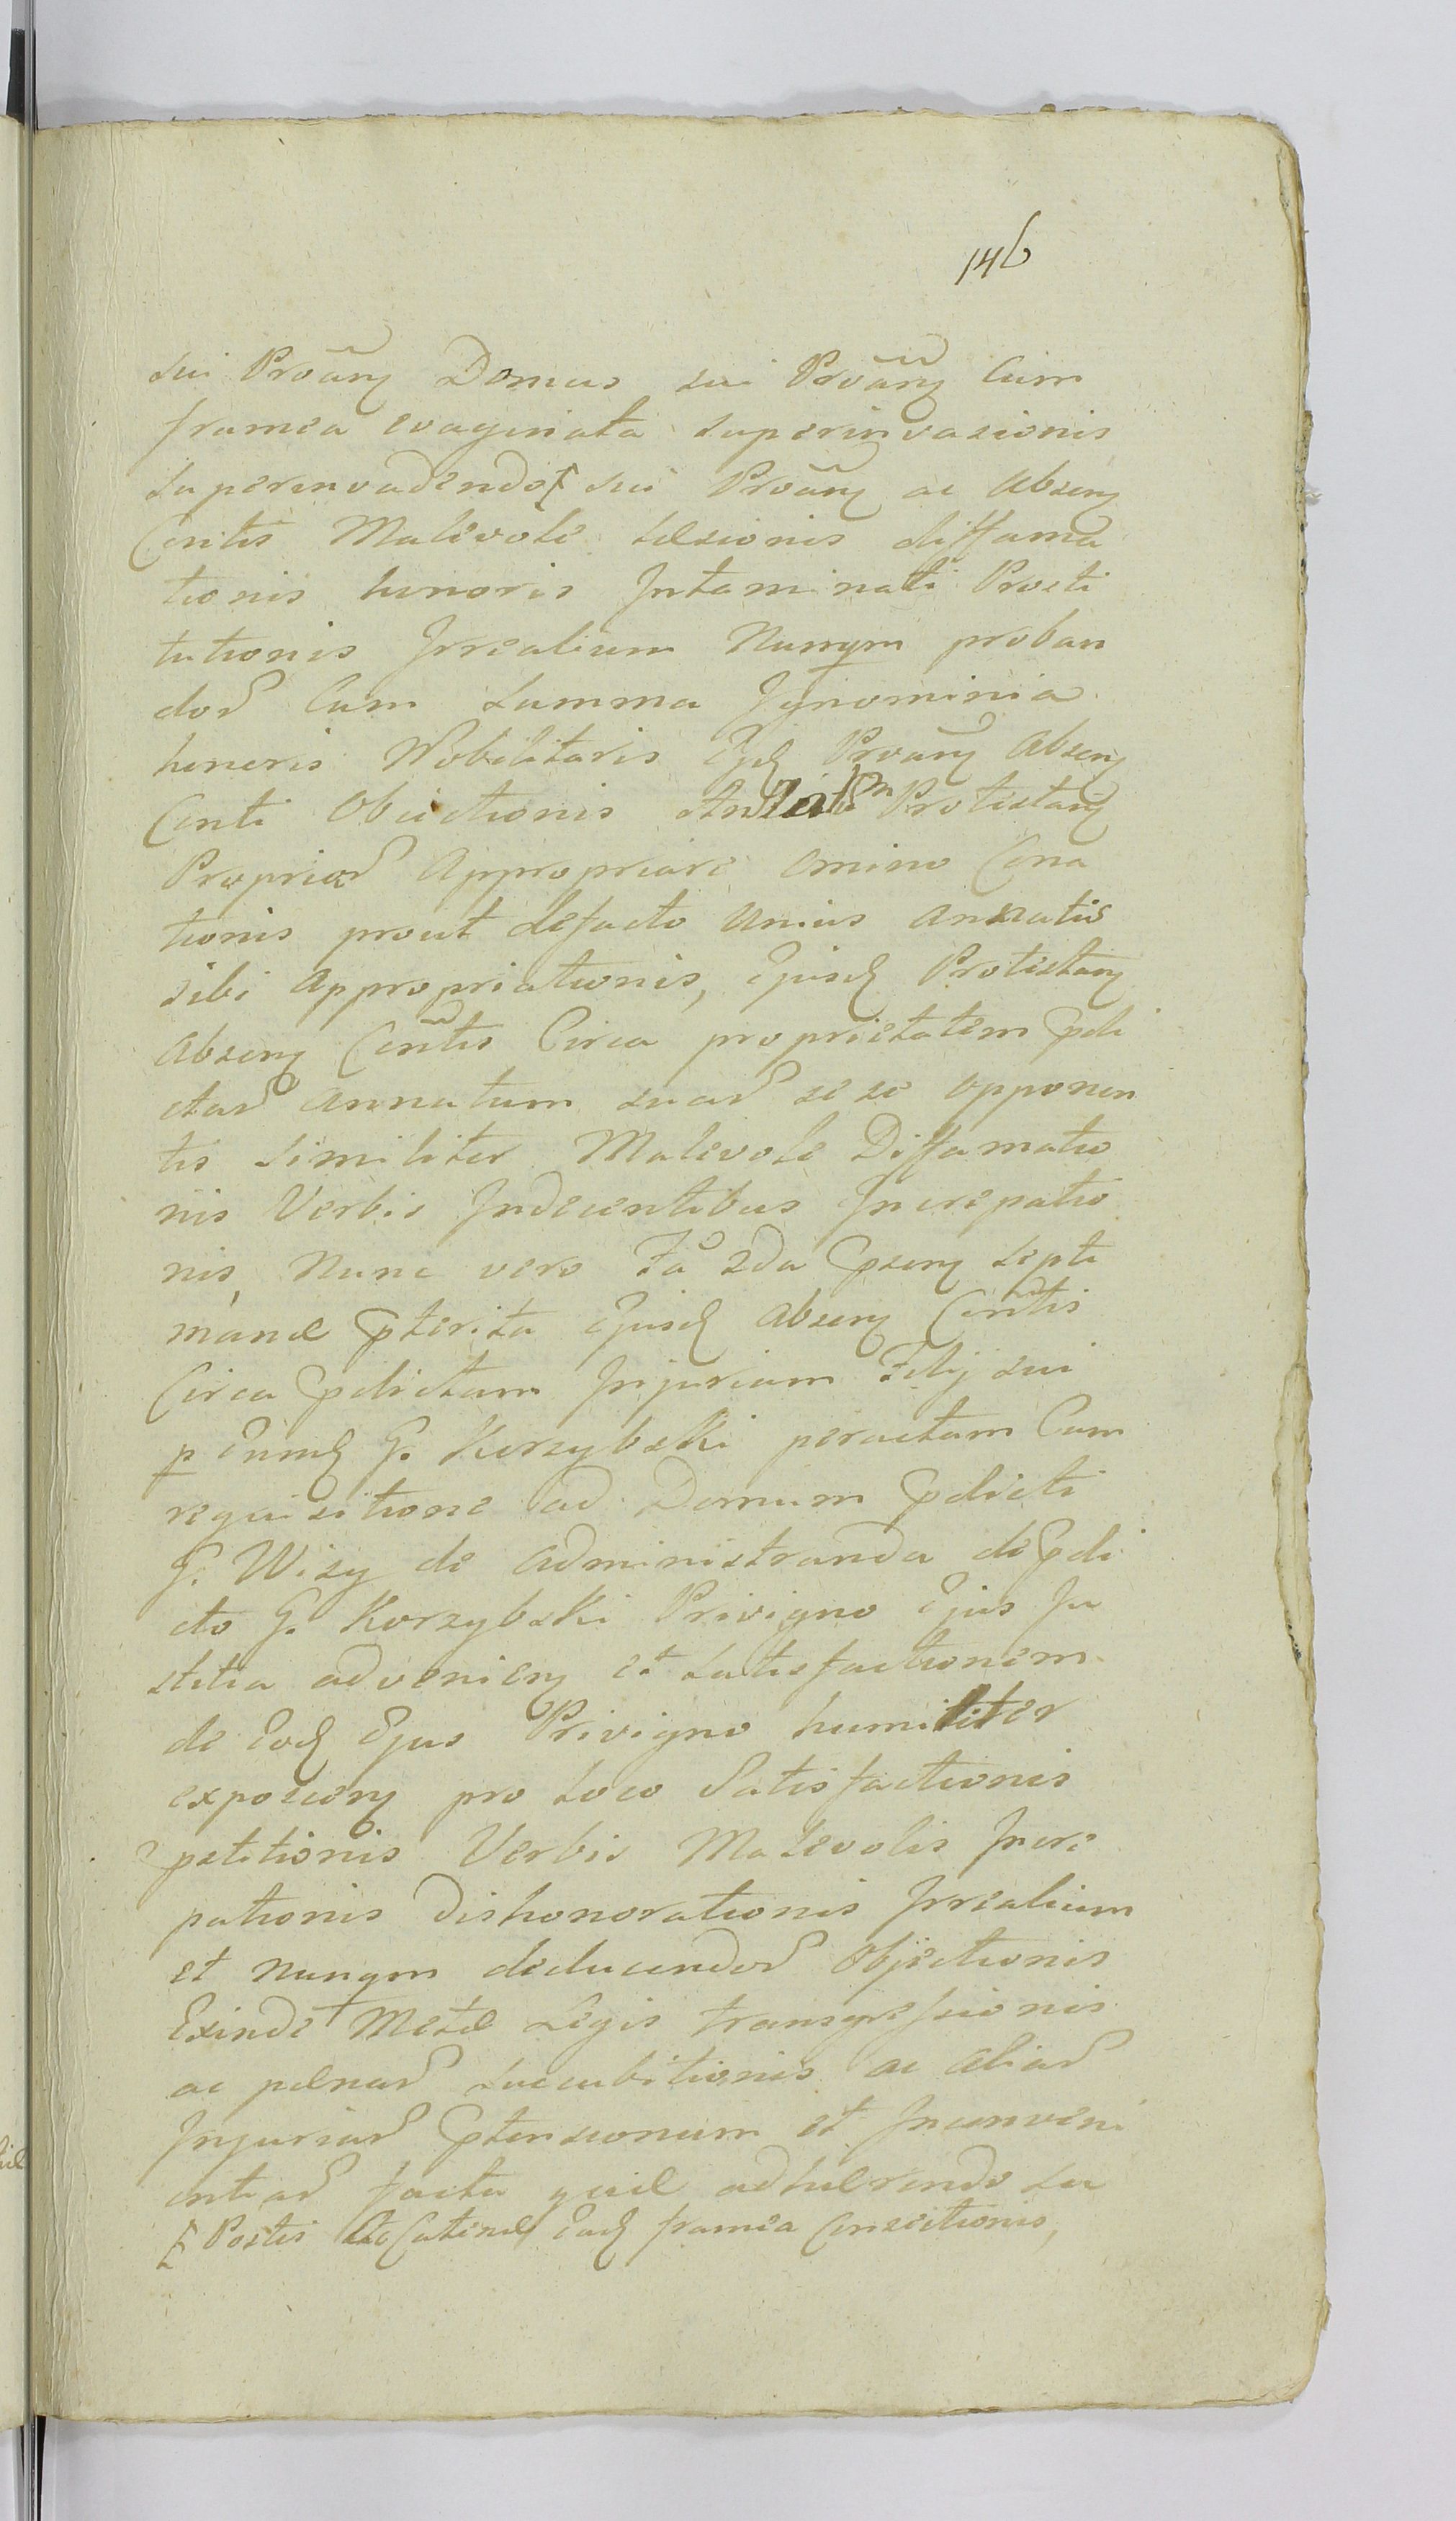 146
sui Proãnʒ Domus sui Proãnʒ Cum
framea evaginata superinvasionis
superinvadendo [ sui Proãnʒ ac absenʒ
Contis Malevole læsionis diffama
tionis honoris Intaminati Prosti
tutionis Irrealium Nunqm proban
dor Cum summa Ignominia
honoris Nobilitaris Proãnʒ absenʒ
Conti Obiectionis Protestanʒ
Proprior appropriare omino Cona
tionis prout defacto unius annatis
sibi appropriationis, Ejusd Protestanʒ
absenʒ Contis Circa proprietatem pdi
ctar annatum suar se se opponen
tis similiter Malevole Diffamatio
nis Verbis Indecentibus Increpatio
nis, Nunc vero Fa 2da psenʒ septi
manæ pterita Ejusd absenʒ Contis
Circa pdictam Injuriam Filij sui
p Eund G. Korzybski peractam Cum
requisitione ad Domum pdicti
G. Wizy de administranda de pdi
cto G. Korzybski Privigno Ejus Ju
stitia advenienʒ et satisfactionem
de Eod Ejus Privigno humiliter
exposcenʒ pro loco Satisfactionis
petitionis Verbis Malevolis Incre
pationis dishonorationis Irrealium
et nunqm deducendor Objectionis
Exinde Metæ Legis transgressionis
ac pænar succubitionis ac aliar
Injuriar ptensionum et Inconveni
entiar facta quæ adhærendo su
[ Postis Catenæ Ead framea Conscitionis,